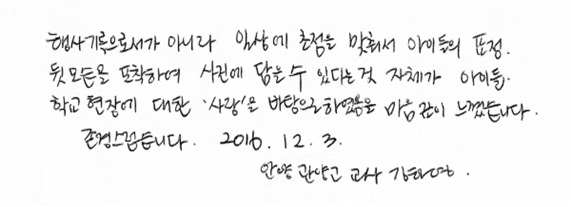 행사기록으로서가 아니라 일상에 초점을 맞춰서 아이들의 표정.
뒷모든을 포착하여 사진에 담을 수 있다는 것 자체가 아이들.
학교 현장에 대한 '사랑'을 바탕으로 하였음을 마음 깊이 느꼈습니다.
존경스럽습니다. 2016. 12. 3.
안양 관양고 교사